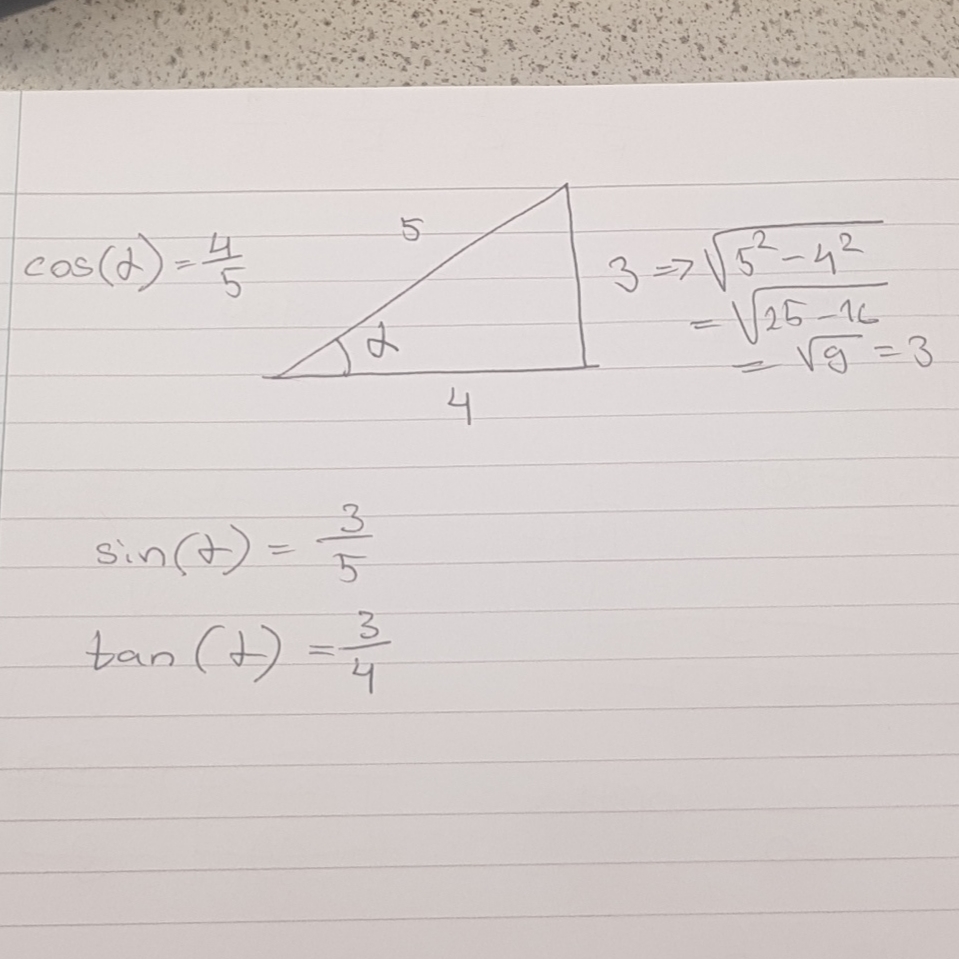 cos(α) = 4/5
5
α
4
3 => √(5² - 4²)
= √(25 - 16)
= √9 = 3
sin(α) = 3/5
tan(α) = 3/4